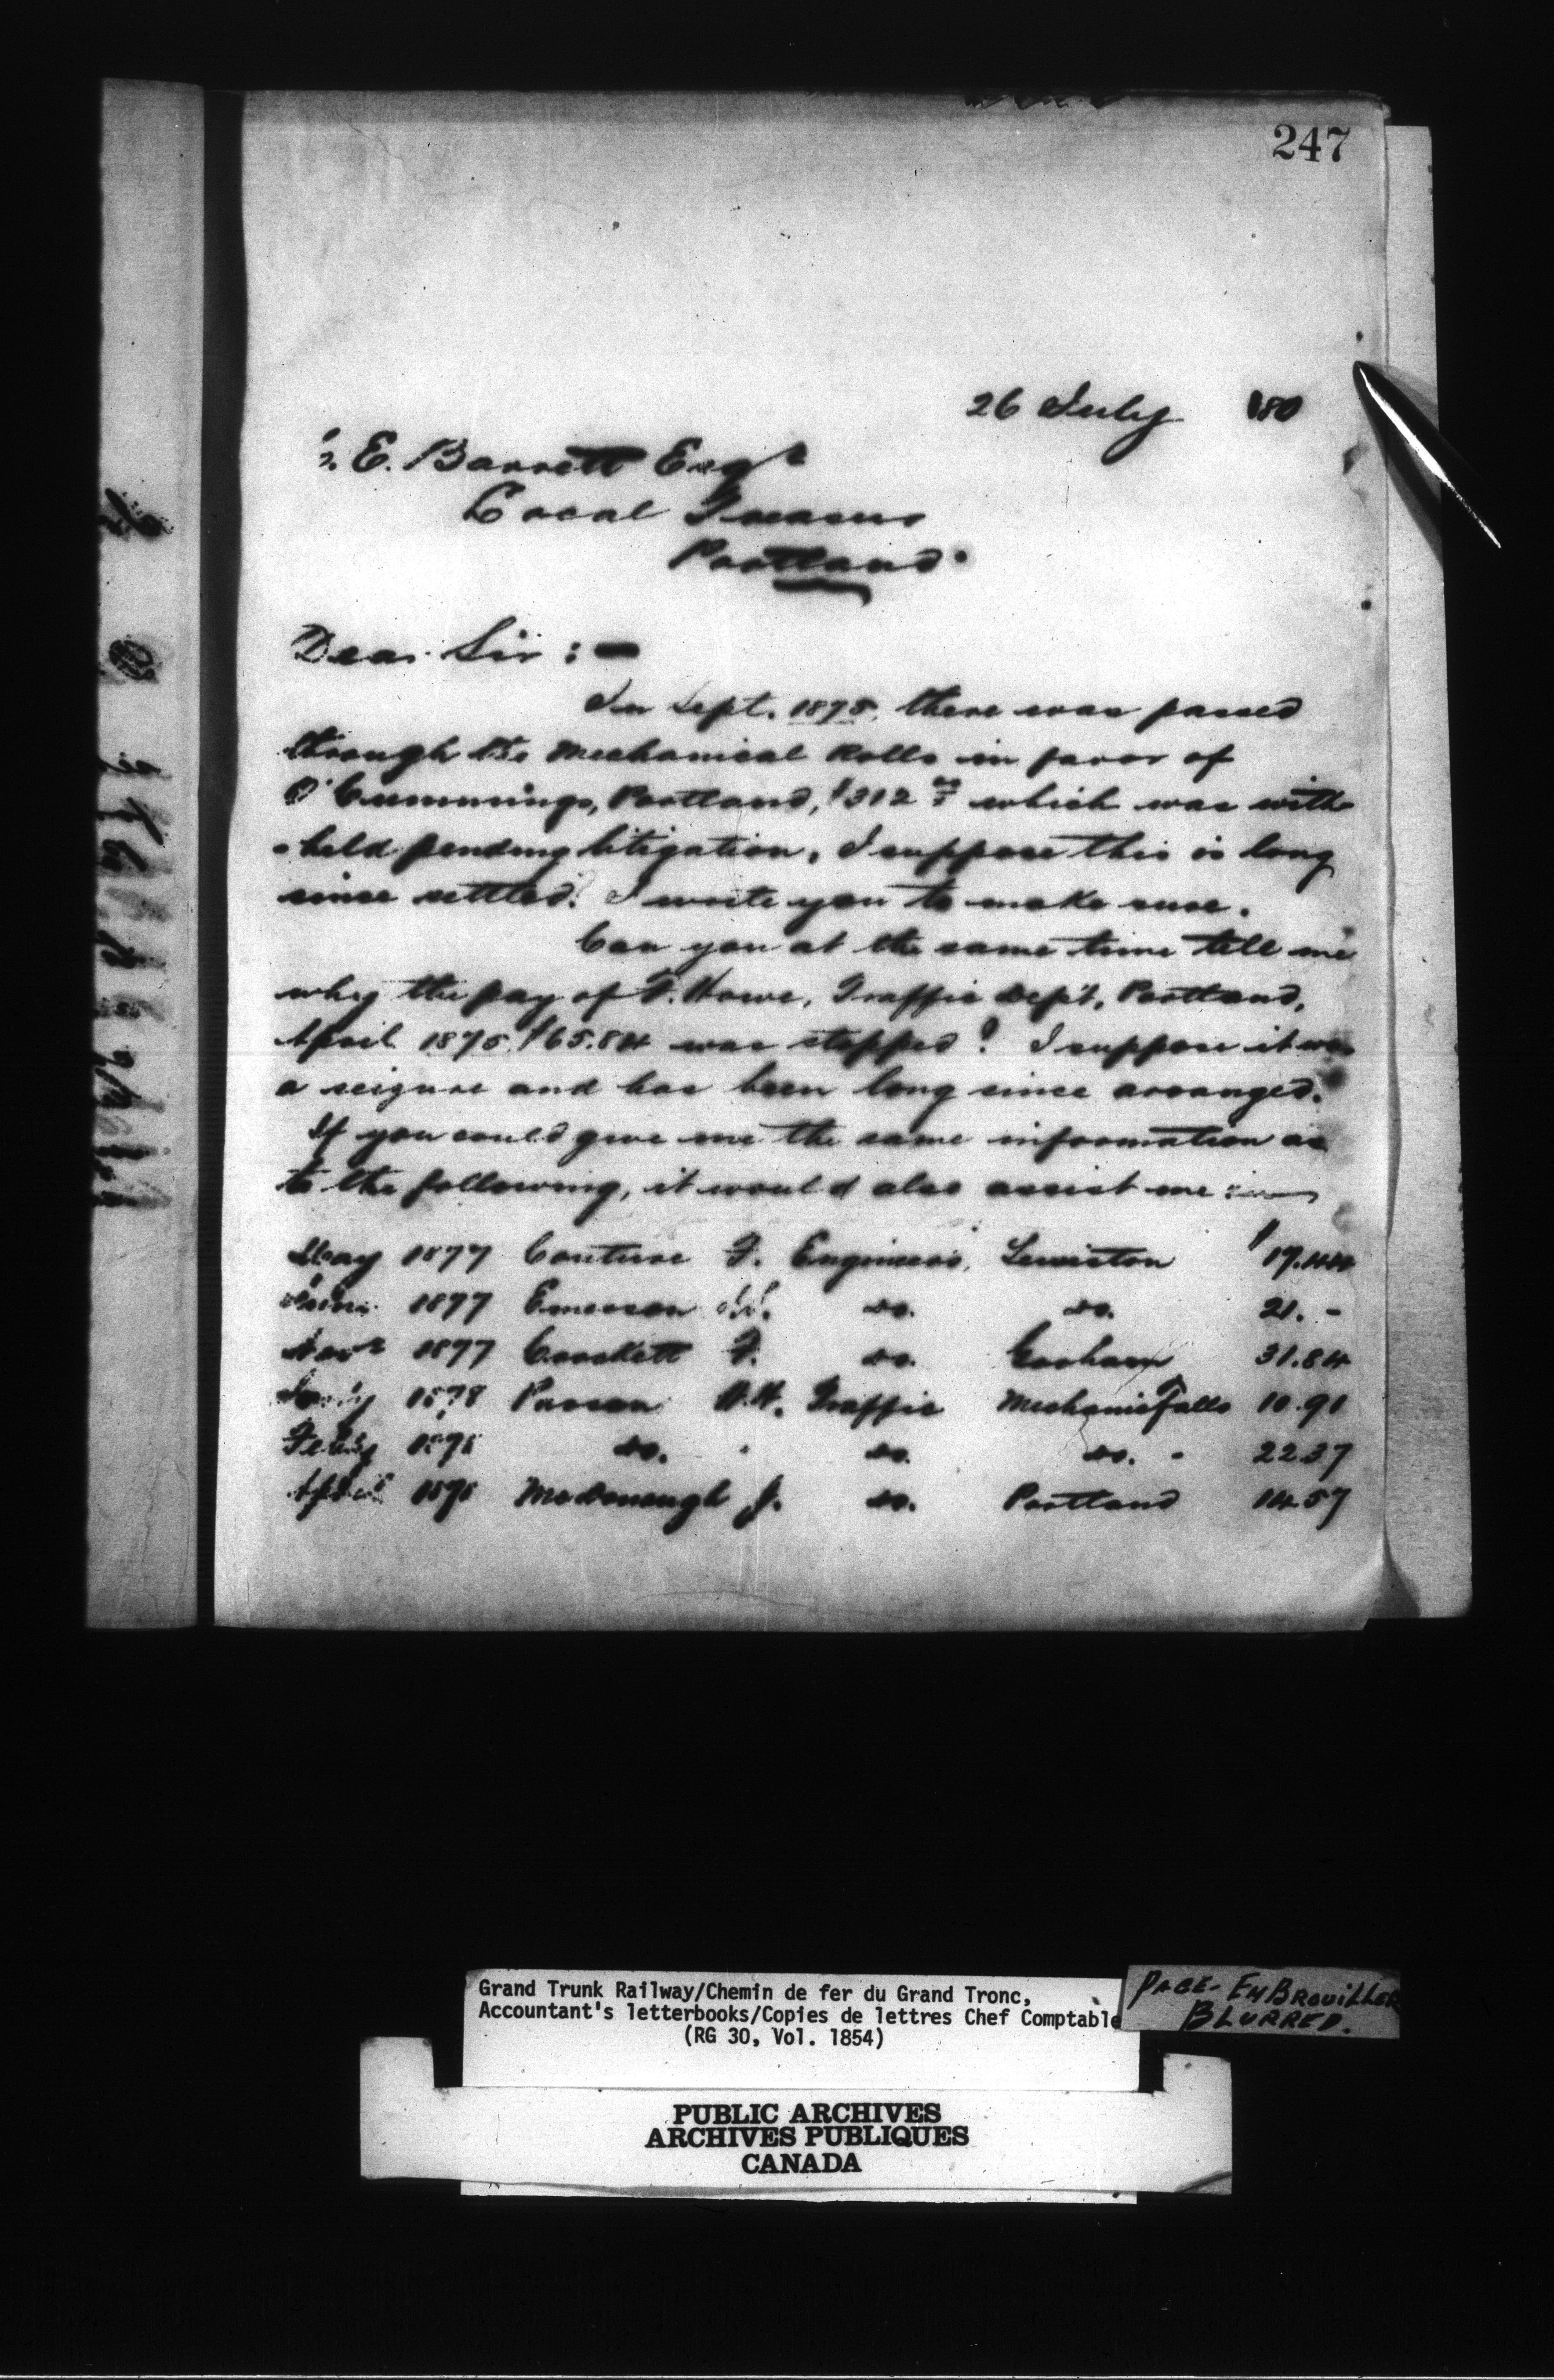 247
26 July 180
E. Barrett Esqr
Local Treasur
Portland.
Dear Sir :-
In Sept. 1875, there was passed
through the Mechanical Rolls in favor of
Cummings, Portland, $312 which was with-
-held pending litigation, I suppose this is long
since settled. I write you to make sure.
Can you at the same time tell me
why the pay of F. Howe, Traffic Dept, Portland,
April 1875 $65.84 was stopped? I suppose it was
a seizure and has been long since arranged.
If you could give me the same information as
to the following, it would also assist me :-
May 1877 Couture F. Engineers, Lewiston $17.44
June 1877 Emerson do. do. 21. -
Novr 1877 Crockett F. do. Gorham 31.84
1878 H. Traffic Mechanic Falls 10.91
Feby 1878 do. do. do. 22.37
April 1878 McDonough J. do. Portland 14.57
Grand Trunk Railway/Chemin de fer du Grand Tronc,
Accountant's letterbooks/Copies de lettres Chef Comptable
(RG 30, Vol. 1854)
PAGE- EMBROUILLER
BLURRED.
PUBLIC ARCHIVES
ARCHIVES PUBLIQUES
CANADA